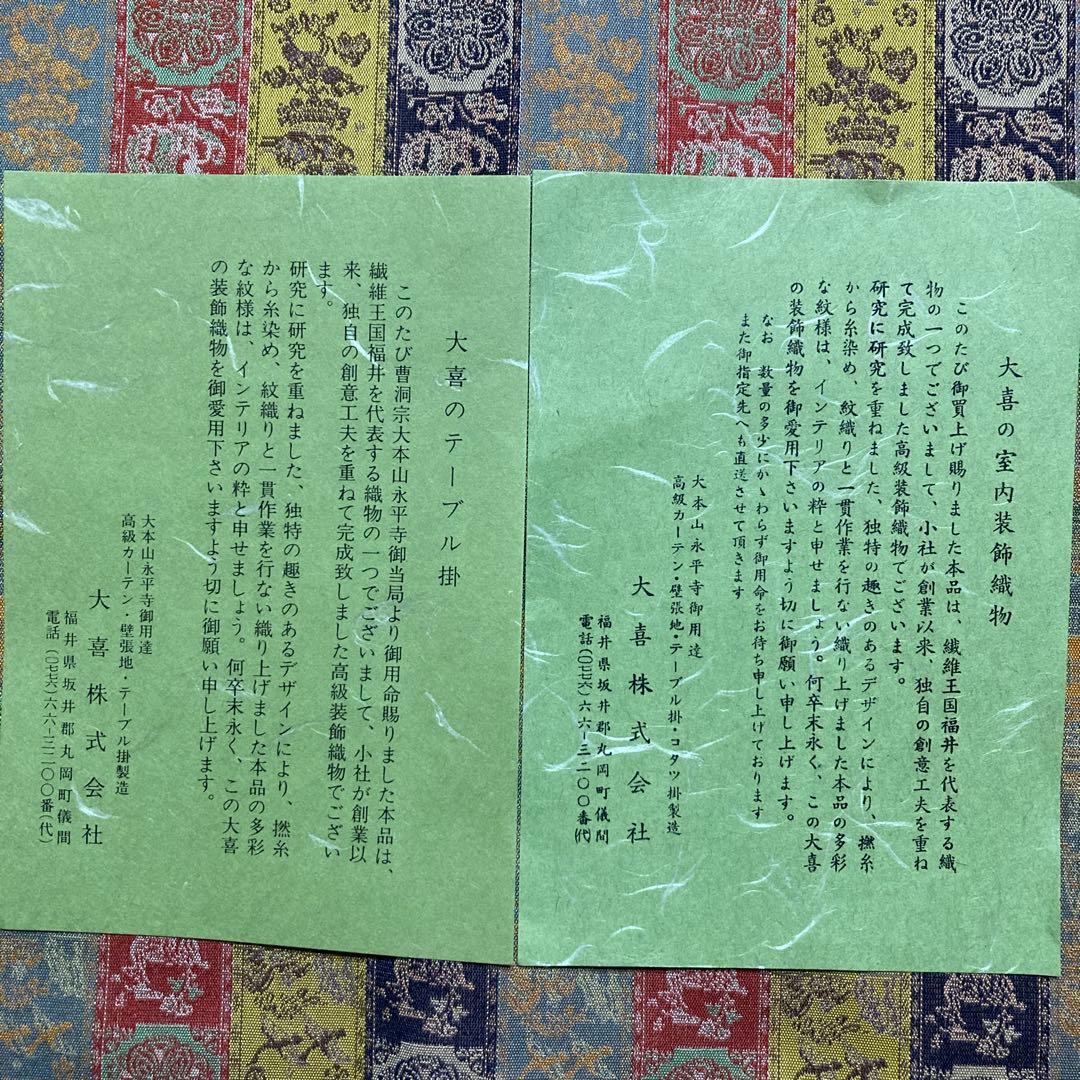 大喜の室内装飾織物
このたび御買上げ賜りました本品は、繊維王国福井を代表する織
物の一つでございまして、小社が創業以来、独自の創意工夫を重ね
て完成致しました高級装飾織物でございます。
研究に研究を重ねました、独特の趣きのあるデザインにより、撚糸
から糸染め、紋織りと一貫作業を行ない織り上げました本品の多彩
な紋様は、インテリアの粋と申せましょう。何卒末永く、この大喜
の装飾織物を御愛用下さいますよう切に御願い申し上げます。
なお 数量の多少にかゝわらず御用命をお待ち申し上げております
また御指定先へも直送させて頂きます
大本山永平寺御用達
高級カーテン・壁張地・テーブル掛・コタツ掛製造
大喜株式会社
福井県坂井郡丸岡町儀間
電話(〇七七六)六六-三二〇〇番(代)
大喜のテーブル掛
このたび曹洞宗大本山永平寺御当局より御用命賜りました本品は、
繊維王国福井を代表する織物の一つでございまして、小社が創業以
来、独自の創意工夫を重ねて完成致しました高級装飾織物でござい
ます。
研究に研究を重ねました、独特の趣きのあるデザインにより、撚糸
から糸染め、紋織りと一貫作業を行ない織り上げました本品の多彩
な紋様は、インテリアの粋と申せましょう。何卒末永く、この大喜
の装飾織物を御愛用下さいますよう切に御願い申し上げます。
大本山永平寺御用達
高級カーテン・壁張地・テーブル掛製造
大喜株式会社
福井県坂井郡丸岡町儀間
電話(〇七七六)六六-三二〇〇番(代)